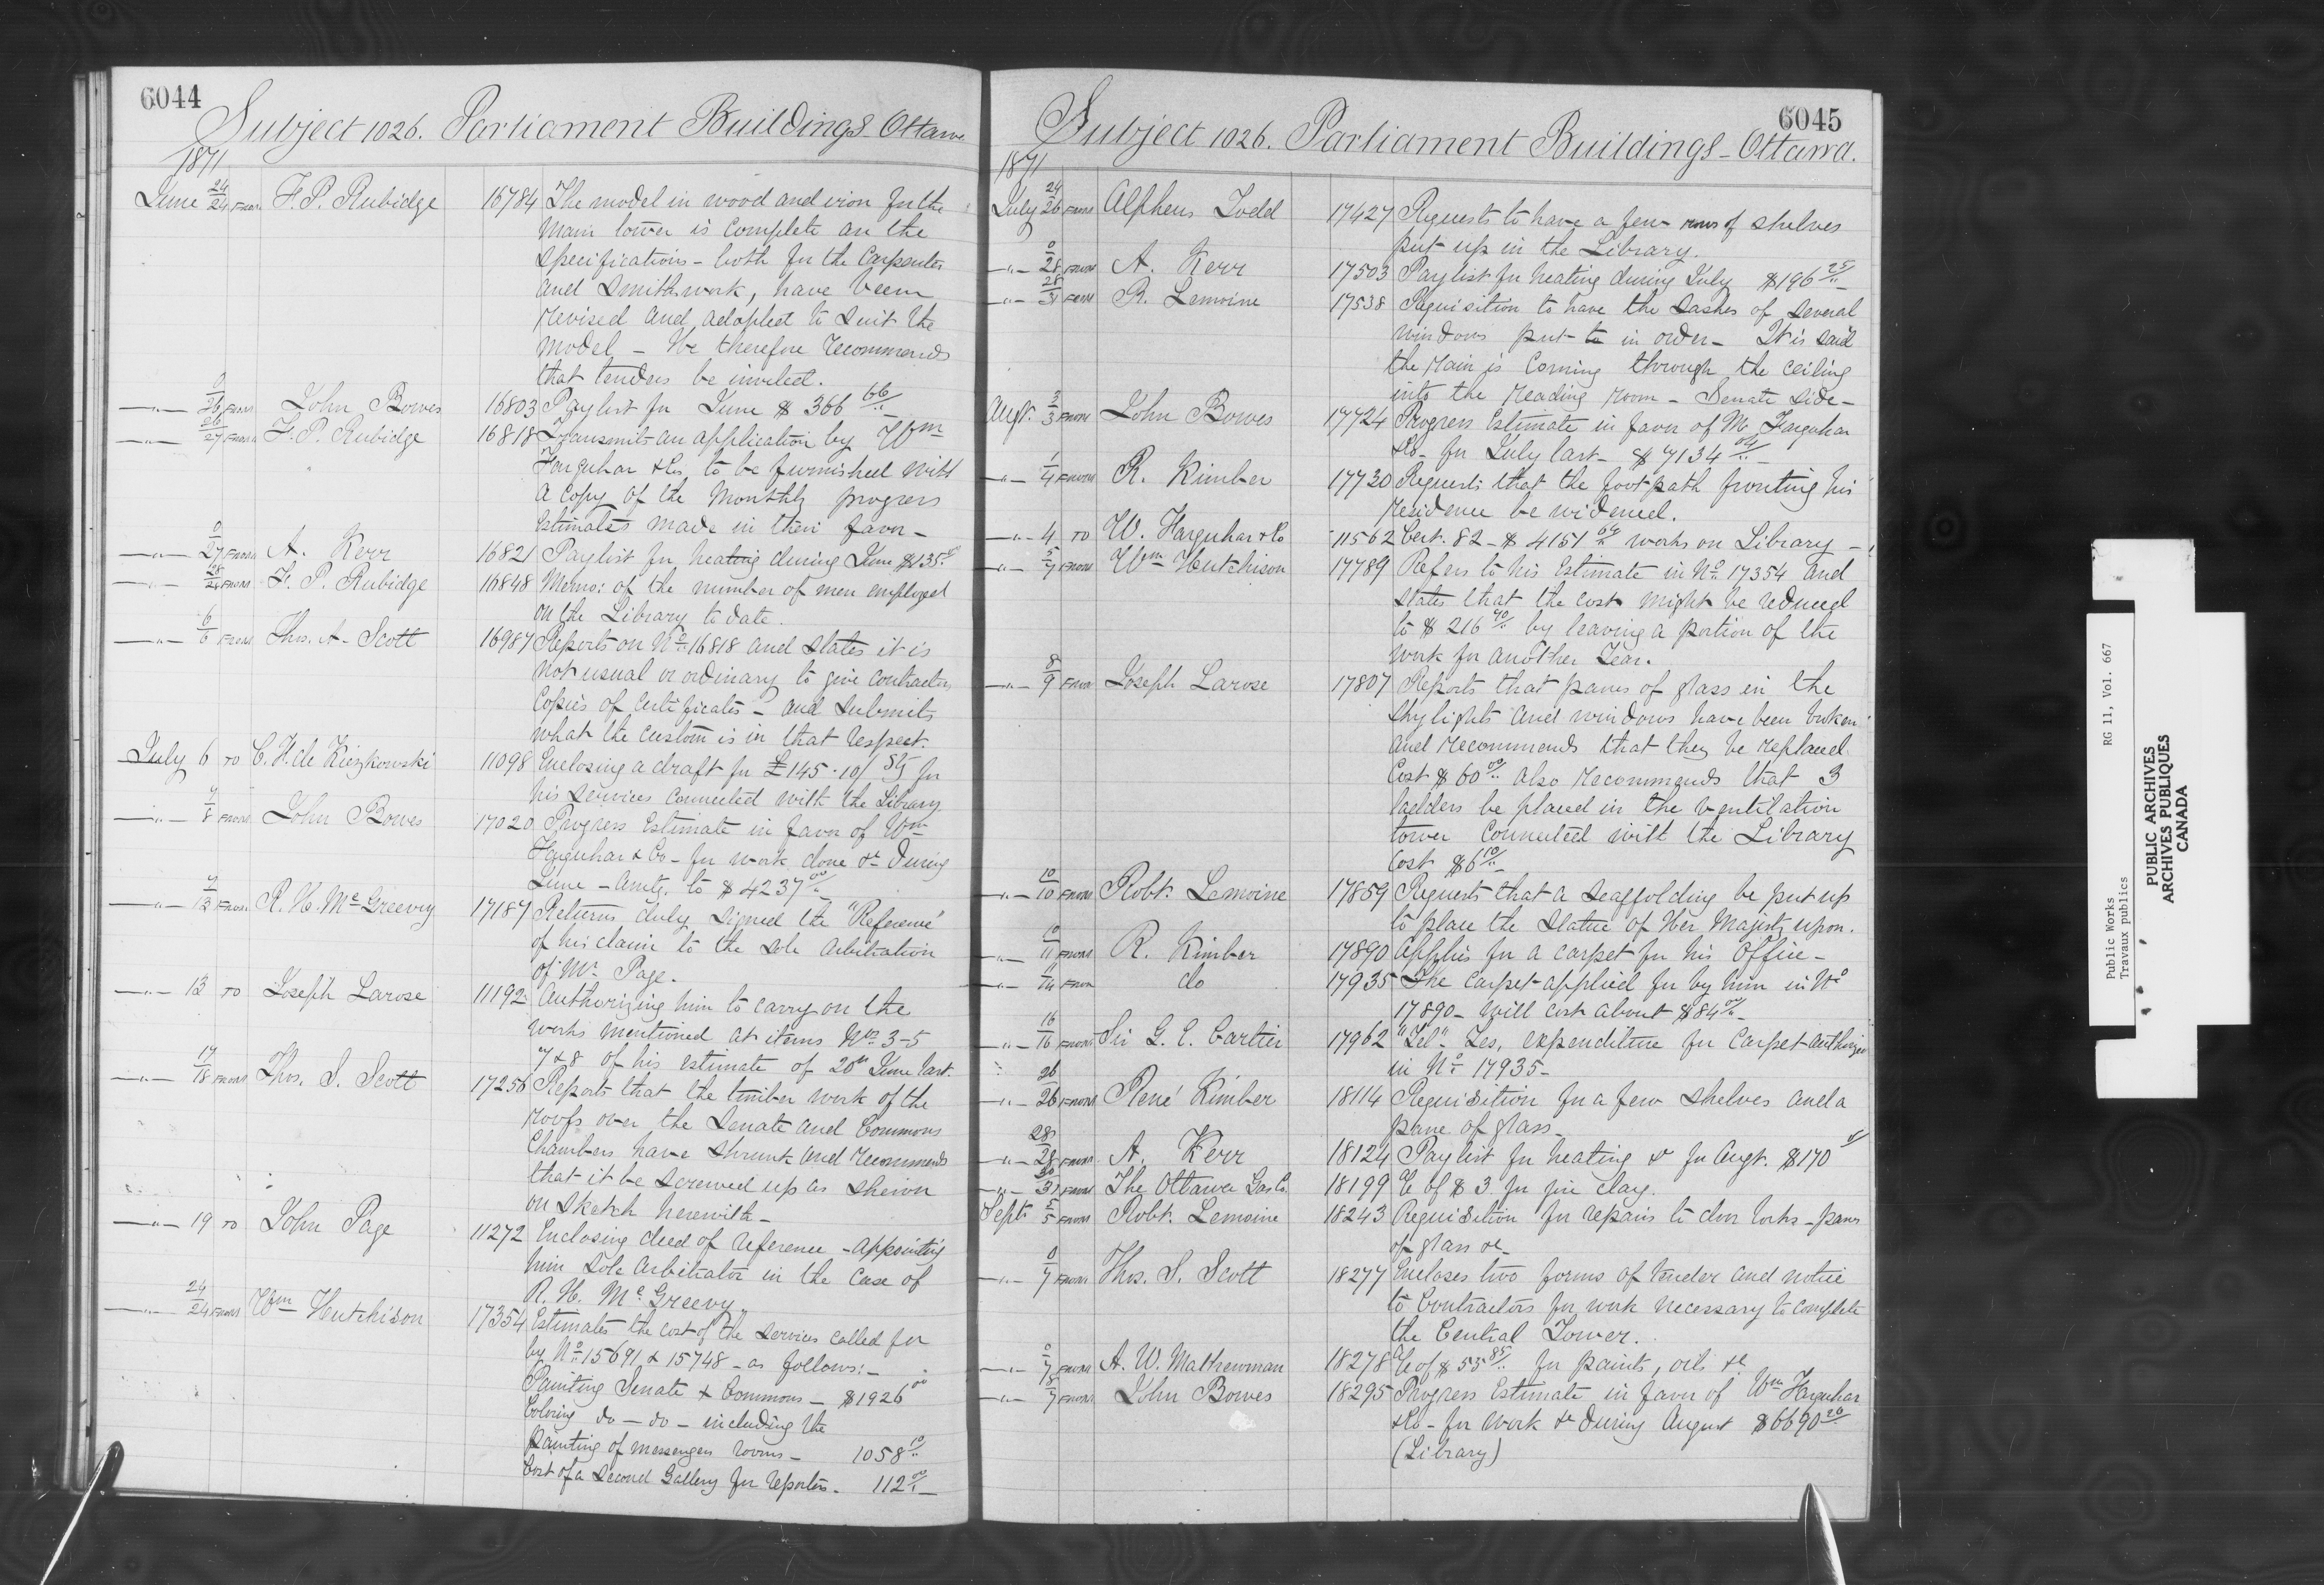 6044
Subject 1026. Parliament Buildings Ottawa
1871
June 24/24 FROM F. P. Rubidge 16784 The model in wood and iron for the
Main tower is complete an the
Specifications - both for the Carpenter
and Smith work, have been
revised and adapted to suit the
model - He therefore recommends
that tenders be invited.
—"— 0/26 FROM John Bowes 16803 Paylist for June $366 66/..
—"— 26/27 FROM F. P. Rubidge 16818 Transmits an application by Wm
Farquhar & Co. to be furnished with
a copy of the Monthly progress
Estimates made in their favor -
—"— 0/27 FROM A. Kerr 16821 Paylist for heating during June $135.
—"— 28/28 FROM F. P. Rubidge 16848 Memo: of the number of men employed
on the Library to date.
—"— 6/6 FROM Thos. A. Scott 16987 Reports on No. 16818 and states it is
not usual or ordinary to give contractors
Copies of Certificates - and submits
what the custom is in that respect.
July 6 TO C. F. de Kiezkowski 11098 Enclosing a draft for £145.10/ Stg for
his services connected with the Library
—"— 7/8 FROM John Bowes 17020 Progress Estimate in favor of Wm
Farquhar & Co - for work done &c during
June - amtg. to $4237 00/..
—"— 7/13 FROM R. H. McGreevy 17187 Returns duly signed the "Reference"
of his claim to the sole arbitration
of Mr. Page.
—"— 13 TO Joseph Larose 11192 Authorizing him to carry on the
works mentioned at items Nos. 3-5
7 & 8 of his estimate of 20th June last.
—"— 17/18 FROM Thos. S. Scott 17256 Reports that the timber work of the
roofs over the Senate and Commons
Chambers have shrunk and recommends
that it be screwed up as shewn
on sketch herewith -
—"— 19 TO John Page 11272 Enclosing deed of reference - appointing
him Sole Arbitrator in the case of
R. H. McGreevy
—"— 24/24 FROM Wm Hutchison 17354 Estimates the cost of the services called for
by No. 15691 & 15748 - as follows: -
Painting Senate & Commons - $1926 00
Coloring do - do - including the
painting of messengers rooms - 1058 10/..
Cost of a second Gallery for reporters. 112 00/..
6045
Subject 1026. Parliament Buildings - Ottawa.
1871
July 24/26 FROM Alpheus Todd 17427 Requests to have a few rows of shelves
put up in the Library.
—"— 0/28 FROM A. Kerr 17503 Paylist for heating during July $196 25/..
—"— 28/31 FROM R. Lemoine 17538 Requisition to have the sashes of several
windows put to in order - It is said
the rain is coming through the ceiling
into the reading room - Senate side -
Augt. 2/3 FROM John Bowes 17724 Progress Estimate in favor of M. Farquhar
& Co - for July last - $7134 04/..
—"— 1/4 FROM R. Kimber 17730 Requests that the foot path fronting his
residence be widened.
—"— 4 TO W. Farquhar & Co 11562 Cert. 82 - $4151 64 works on Library -
—"— 5/7 FROM Wm Hutchison 17789 Refers to his Estimate in No. 17354 and
states that the cost might be reduced
to $216 40/.. by leaving a portion of the
work for another Year.
—"— 8/9 FROM Joseph Larose 17807 Reports that panes of glass in the
skylights and windows have been broken
and recommends that they be replaced
Cost $60 00/.. also recommends that 3
ladders be placed in the ventilation
tower connected with the Library
Cost $6 10/..
—"— 10/10 FROM Robt. Lemoine 17859 Requests that a scaffolding be put up
to place the statue of Her Majesty upon.
—"— 10/11 FROM R. Kimber 17890 Applies for a carpet for his Office -
—"— /14 FROM do 17935 The carpet applied for by him in No
17890 - will cost about $84 00/..
—"— 16/16 FROM Sir G. E. Cartier 17962 "Tel". Yes, expenditure for Carpet authorized
in No. 17935 -
—"— 26/26 FROM René Kimber 18114 Requisition for a few shelves and a
pane of glass -
—"— 28/28 FROM A. Kerr 18124 Paylist for heating &c for Augt. $170
—"— 30/31 FROM The Ottawa Gas Co. 18199 % of $3 for fire clay.
Septr 2/5 FROM Robt. Lemoine 18243 Requisition for repairs to door locks - panes
of glass &c -
—"— 0/7 FROM Thos. S. Scott 18277 Encloses two forms of tender and notice
to Contractors for work necessary to complete
the Central Tower.
—"— 0/7 FROM A. W. Mathewman 18278 % of $55 85/.. for paints, oils &c
—"— 8/9 FROM John Bowes 18295 Progress Estimate in favor of Wm Farquhar
& Co - for work &c during August $6690 26/..
(Library)
Public Works RG 11, Vol. 667
Travaux publics
PUBLIC ARCHIVES
ARCHIVES PUBLIQUES
CANADA